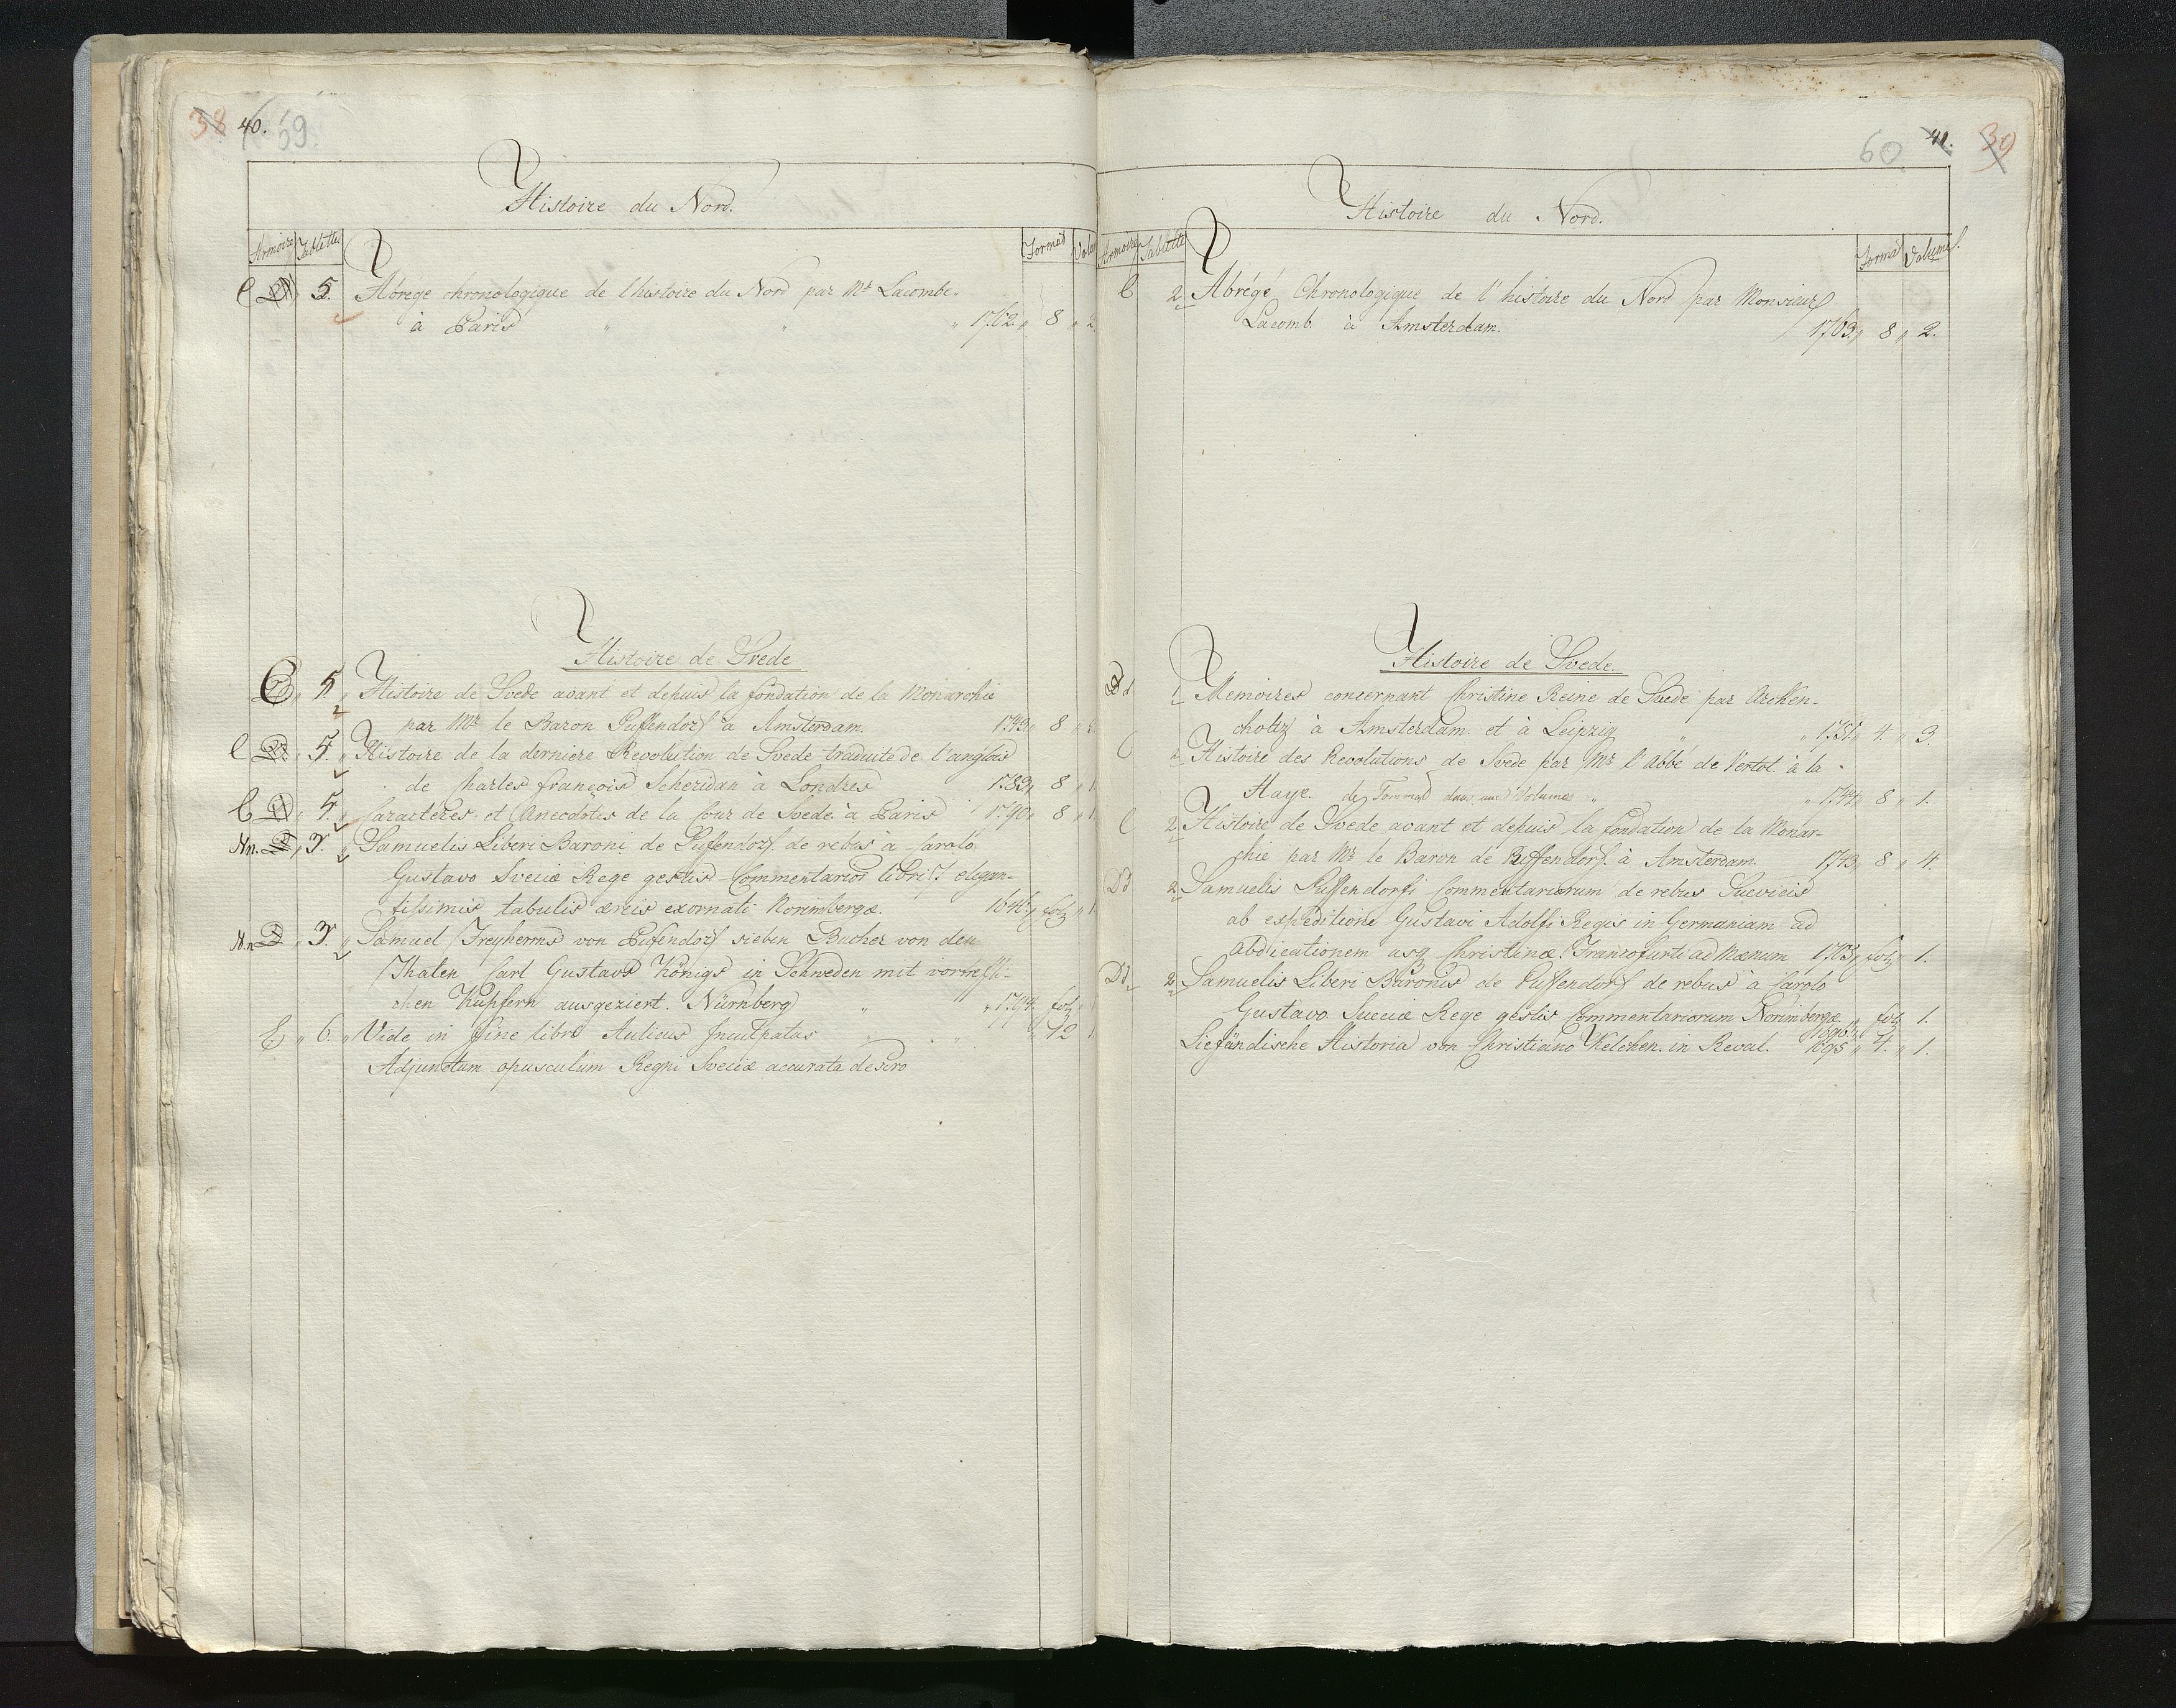 38 40. 59.
Histoire du Nord.
Armoire Tablettes Format Volum
C D 5. Abregé chronologique de l'histoire du Nord par Mr Lacombe.
à Paris " " " 1762 " 8 " 2.
Histoire de Svede
C D " 5. " Histoire de Svede avant et depuis la fondation de la Monarchie
par Mr le Baron Puffendorf à Amsterdam. 1743 " 8 "
C D. " 5. " Histoire de la derniere Revolution de Svede traduite de l'anglais
de Charles françois Scheridan à Londres 1783 " 8 " 1
C D " 5. " Caracteres et Anecdotes de la Cour de Svede à Paris 1790 " 8 " 1
Nn. D " 3. " Samuelis Liberi Baroni de Puffendorf de rebus à Carolo
Gustavo Sveciæ Rege gestis Commentarior libri 7 elegan-
tissimis tabulis æreis exornati Norimbergæ. fol " 1
Nn D " 3. " Samuel Freyherrns von Pufendorf sieben Bucher von den
Thaten Carl Gustavs Königs in Schweden mit vortreffli-
chen Kupfern ausgeziert. Nürnberg " " fol "
E " 6. " Vide in fine libro Aulicus Inculpatus " " 12 1.
Adjunctum opusculum Regni Sveciæ accurata descro
60 41. 39
Histoire du Nord.
Armoire Tablette Format Volumes.
C 2 Abrégé Chronologique de l'histoire du Nord par Monsieur
Lacomb. à Amsterdam. 1763 " 8 " 2.
Histoire de Svede.
Dd 1 Memoires concernant Christine Reine de Suede par Archen-
choltz à Amsterdam. et à Leipzig " " 1751 " 4. " 3.
C 2 Histoire des Revolutions de Svede par Mr l'Abbé de Vertot. à la
Haye. de Tommes dans une Volumes " " 8 " 1.
C 2 Histoire de Svede avant et depuis la fondation de la Monar-
chie par Mr le Baron de Puffendorf. à Amsterdam. 1743 " 8 " 4.
Dd 2 Samuelis Puffendorfi Commentariorum de rebus Suecicis
ab expeditione Gustavi Adolfi Regis in Germaniam ad
abdicationem usq Christinæ. Francofurti ad Mænum 1705 " fol " 1.
Dd 2 Samuelis Liberi Baronis de Puffendorf de rebus à Carolo
Gustavo Sueciæ Rege gestis Commentariorum Norimbergæ 1696. " fol 1.
Liefländische Historia von Christiano Kelchen. in Reval. 1695 " 4. " 1.